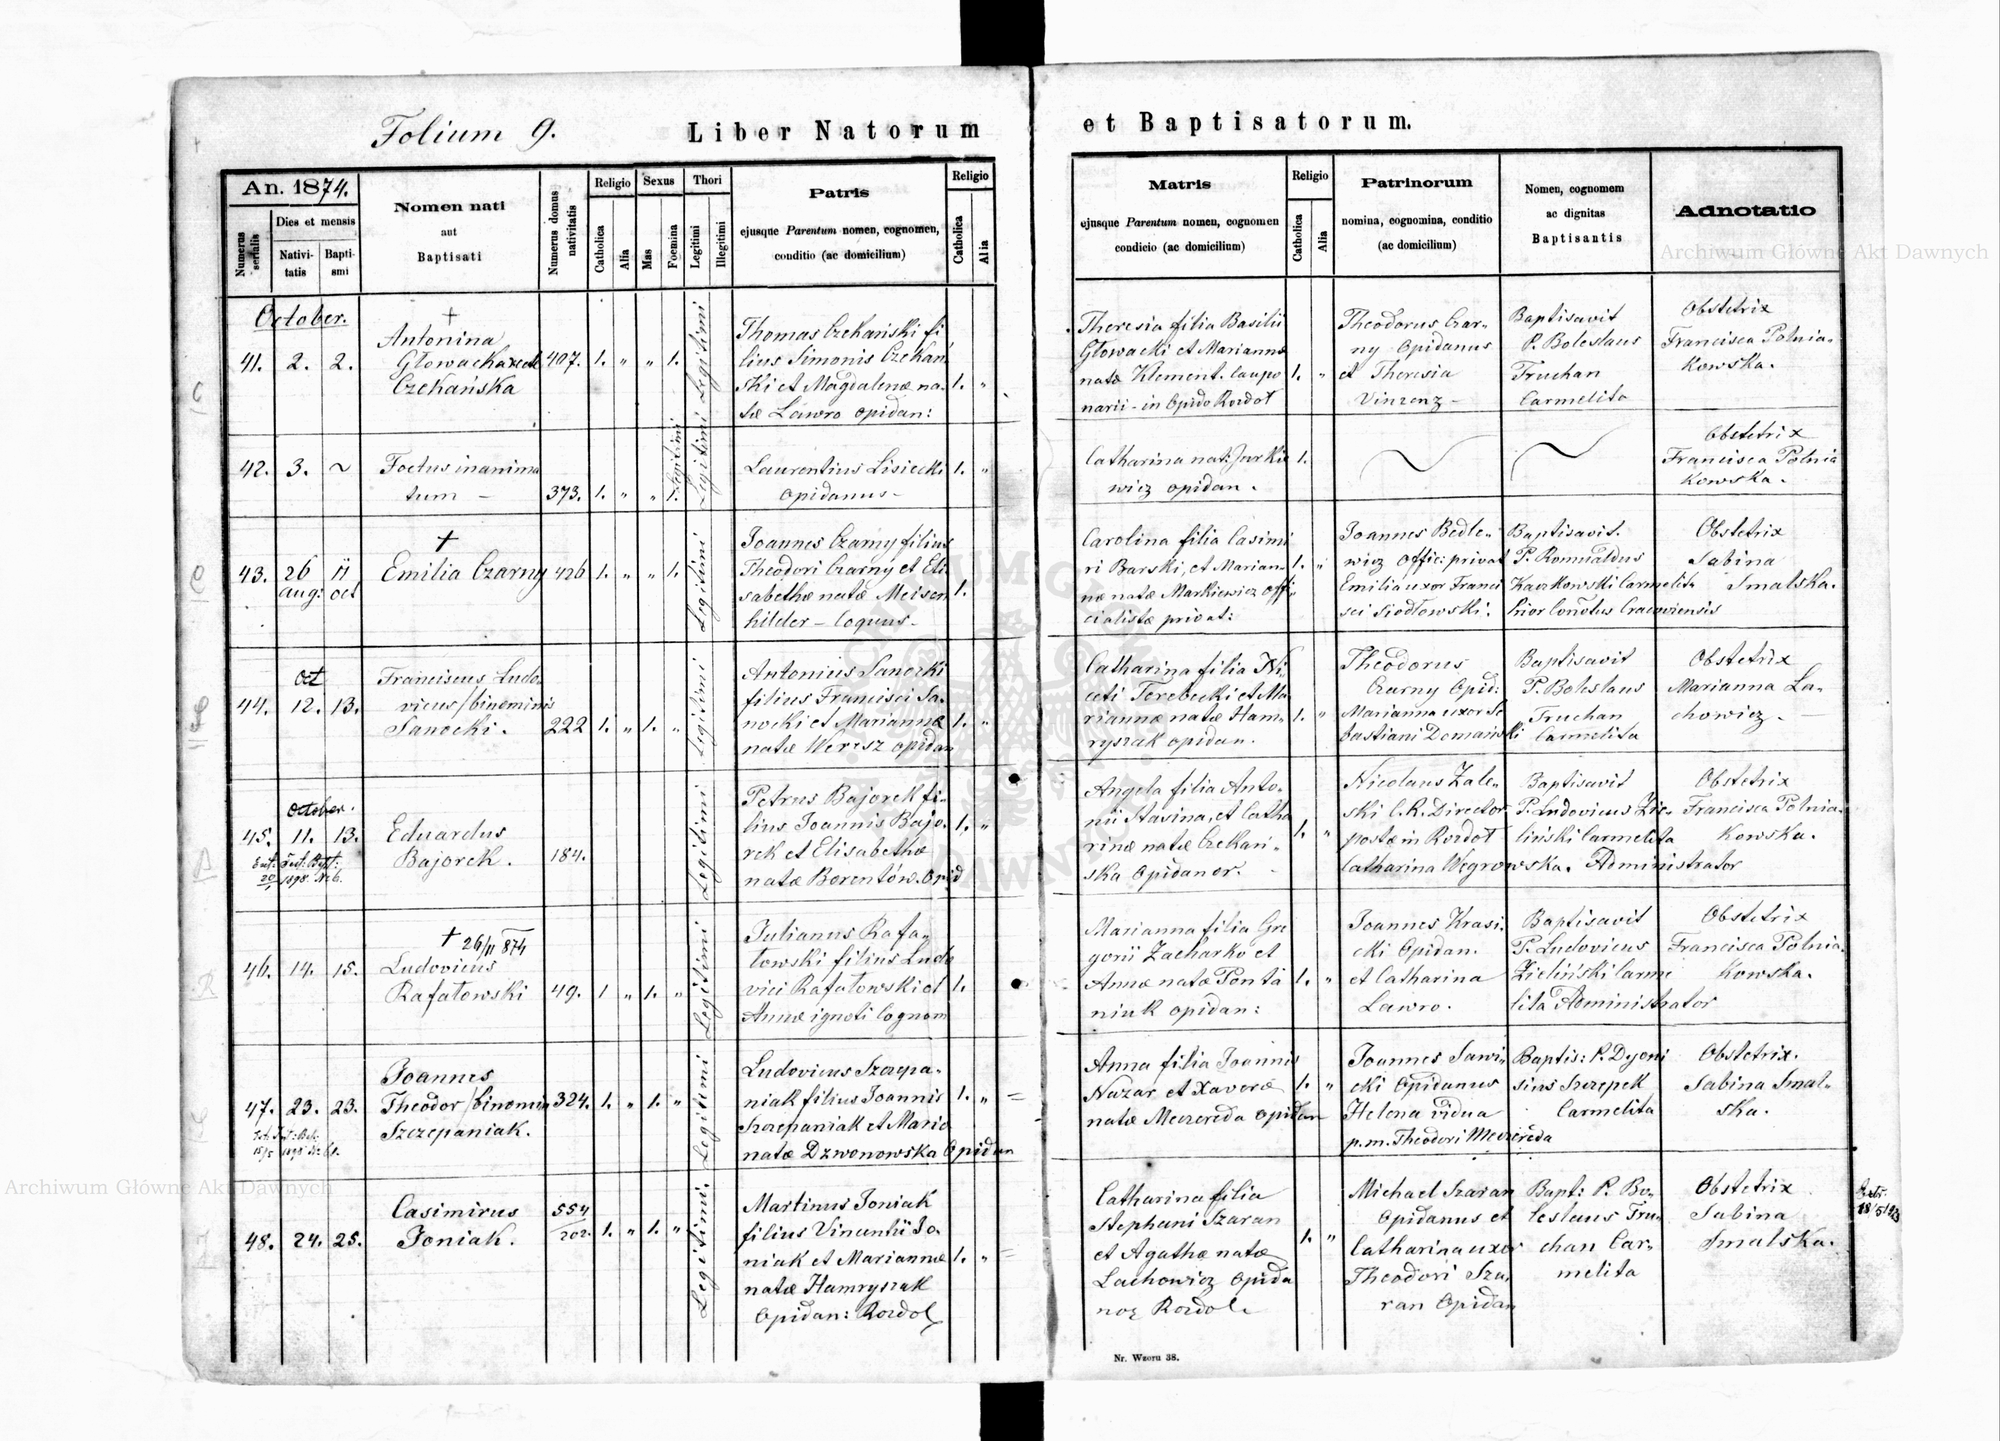 Folium 9.
Liber Natorum et Baptisatorum.
An. 1874.
Numerus serialis
Dies et mensis
Nativitatis
Baptismi
Nomen nati
aut
Baptisati
Numerus domus nativitatis
Religio
Catholica
Alia
Sexus
Mas
Foemina
Thori
Legitimi
Illegitimi
Patris
ejusque Parentum nomen, cognomen,
conditio (ac domicilium)
Religio
Catholica
Alia
Matris
ejusque Parentum nomen, cognomen
condicio (ac domicilium)
Religio
Catholica
Alia
Patrinorum
nomina, cognomina, conditio
(ac domicilium)
Nomen, cognomem
ac dignitas
Baptisantis
Adnotatio
October.
41. 2. 2.
†
Antonina
Głowacka
Czekańska
407. 1. " " 1.
Legitimi
Thomas Czekański fi
lius Simonis Czekań
ski et Magdalenæ na-
tæ Ławro opidan:
1. "
Theresia filia Basilii
Głowacki et Mariannæ
natæ Klement. caupo
narii - in Opido Rozdoł
1. "
Theodorus Czar-
ny Opidanus
et Theresia
Vinzenz -
Baptisavit
P. Boleslaus
Truchan
Carmelita
Obstetrix
Francisca Polnia-
kowska.
42. 3. ~
Foetus inanima
tum -
373. 1. " " 1.
Legitimi
Legitimi
Laurentius Lisiecki
opidanus -
1. "
Catharina nat: Jurkie
wicz opidan.
1.
Obstetrix
Francisca Polnia
kowska.
43. 26 aug: 11 oct
†
Emilia Czarny
426 1. " " 1.
Legitimi
Joannes Czarny filius
Theodori Czarny et Eli
sabethæ natæ Meisen
hilder - coquus -
1.
Carolina filia Casimi
ri Barski, et Marian-
næ natæ Markiewicz offi-
cialistæ privat:
1. "
Joannes Bedle-
wicz offic: privat
Emilia uxor Franci
sci Siodłowski.
Baptisavit.
P. Romualdus
Kaczkowski Carmelita
Prior Conotus Cracoviensis
Obstetrix
Sabina
Smalska.
oct
44. 12. 13.
Franciscus Ludo-
vicus/binominis
Sanocki.
222 1. " 1. "
Legitimi
Antonius Sanocki
filius Francisci Sa-
nocki et Mariannæ
natæ Wersz opidan
1. "
Catharina filia Ni-
ceti Terebecki et Ma
riannæ natæ Ham-
ryszak opidan.
1. "
Theodorus
Czarny Opid:
Marianna uxor Se
bastiani Domański
Baptisavit
P. Boleslaus
Truchan
Carmelita
Obstetrix
Marianna La-
chowicz.
October.
45. 11. 13.
1898 N 6.
Eduardus
Bajorek.
184.
Legitimi
Petrus Bajorek fi-
lius Joannis Bajo-
rek et Elisabethæ
natæ Borentow. Opid
1. "
Angela filia Anto-
nii Stasina, et Catha
rinæ natæ Czekań-
ska Opidanor.
1. "
Nicolaus Zale-
ski C. R. Director
postæ in Rozdoł
Catharina Wegrowska.
Baptisavit
P. Ludovicus Zie-
liński Carmelita
Administrator
Obstetrix
Francisca Polnia-
kowska.
46. 14. 15.
† 26/11 874
Ludovicus
Rafałowski
49. 1 " 1. "
Legitimi
Julianus Rafa-
łowski filius Ludo
vici Rafałowski et
Annæ ignoti Cognom
1.
Marianna filia Gre
gorii Zacharko et
Annæ natæ Ponta
niuk opidan:
1. "
Joannes Krasi-
cki Opidan.
et Catharina
Lawro.
Baptisavit
P. Ludovicus
Zieliński Carme
lita Administrator
Obstetrix
Francisca Polnia-
kowska.
47. 23. 23.
Joannes
Theodor/binomin
Szczepaniak.
324. 1. " 1. "
Legitimi
Ludovicus Szczepa-
niak filius Joannis
Szczepaniak et Mariæ
natæ Dzwonowska Opidan
1. "
Anna filia Joannis
Nazar et Xaveræ
natæ Meczereda opidan
1. "
Joannes Sawi-
cki Opidanus
Helena vidua
p.m. Theodori Meczereda
Baptis: P. Dyoni
sius Szczepek
Carmelita
Obstetrix.
Sabina Smal-
ska.
48. 24. 25.
Casimirus
Joniak.
554
202. 1. " 1. "
Legitimi.
Martinus Joniak
filius Vincentii Jo-
niak et Mariannæ
natæ Hamryszak
Opidan: Rozdoł
1. "
Catharina filia
Stephani Szaran
et Agathæ natæ
Lachowicz Opida
nor Rozdol.
1. "
Michael Szaran
Opidanus et
Catharina uxor
Theodori Sza-
ran Opidan
Bapt: P. Bo-
leslaus Tru-
chan Car-
melita
Obstetrix
Sabina
Smalska.
Nr. Wzoru 38.
Archiwum Główne Akt Dawnych
Archiwum Główne Akt Dawnych